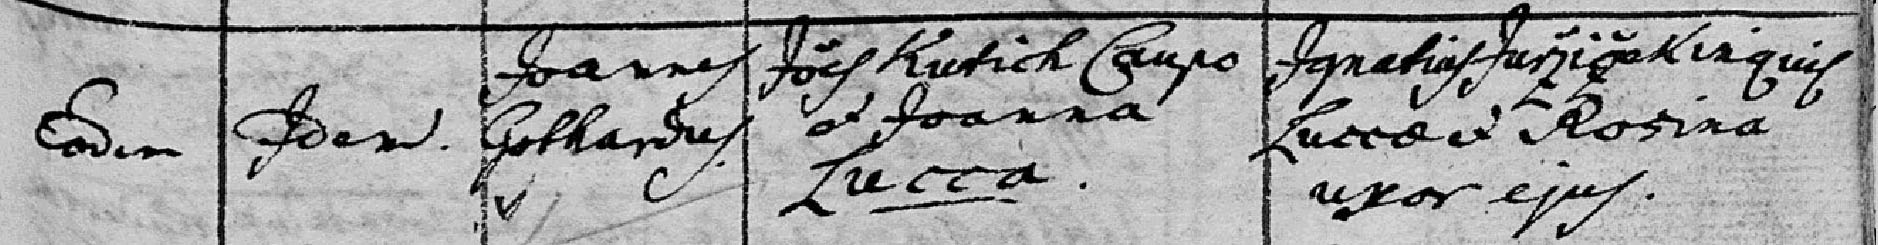 Eodem
Idem.
Joannes
Gothardus.
Jões Kutich Caupo
et Joanna
Lucca.
Ignatius Jurziczek inquis
Luccæ et Rosina
uxor ejus.